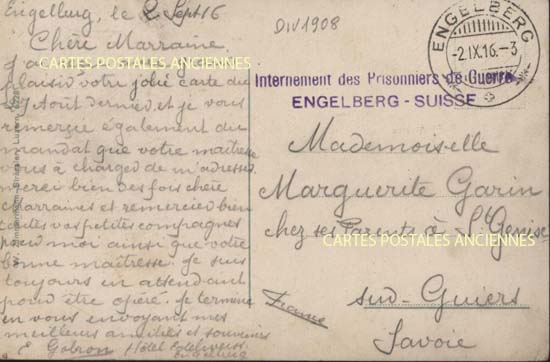 Engelberg, le 2 Sept 16
DIV1908
Chère Marraine
ENGELBERG
-2.IX.16.-3
Internement des Prisonniers de Guerre
ENGELBERG - SUISSE
plaisir votre jolie carte du
7 Aout dernier, et je vous
remercie également du
mandat que votre maitresse
vous à chargée de m'adresser
merci bien des fois chère
marraine et remerciez bien
toutes vos petites compagnes
pour moi ainsi que votre
bonne maitresse. Je suis
toujours en attendant
pour être opéré. Je termine
en vous envoyant mes
meilleurs amitiés et souvenirs
E Gobron Hôtel Edelweiss
Engelberg
Mademoiselle
Marguerite Garin
chez ses Parents à St Genix
sur-Guiers
France
Savoie
CARTES POSTALES ANCIENNES
CARTES POSTALES ANCIENNES
CARTES POSTALES ANCIENNES